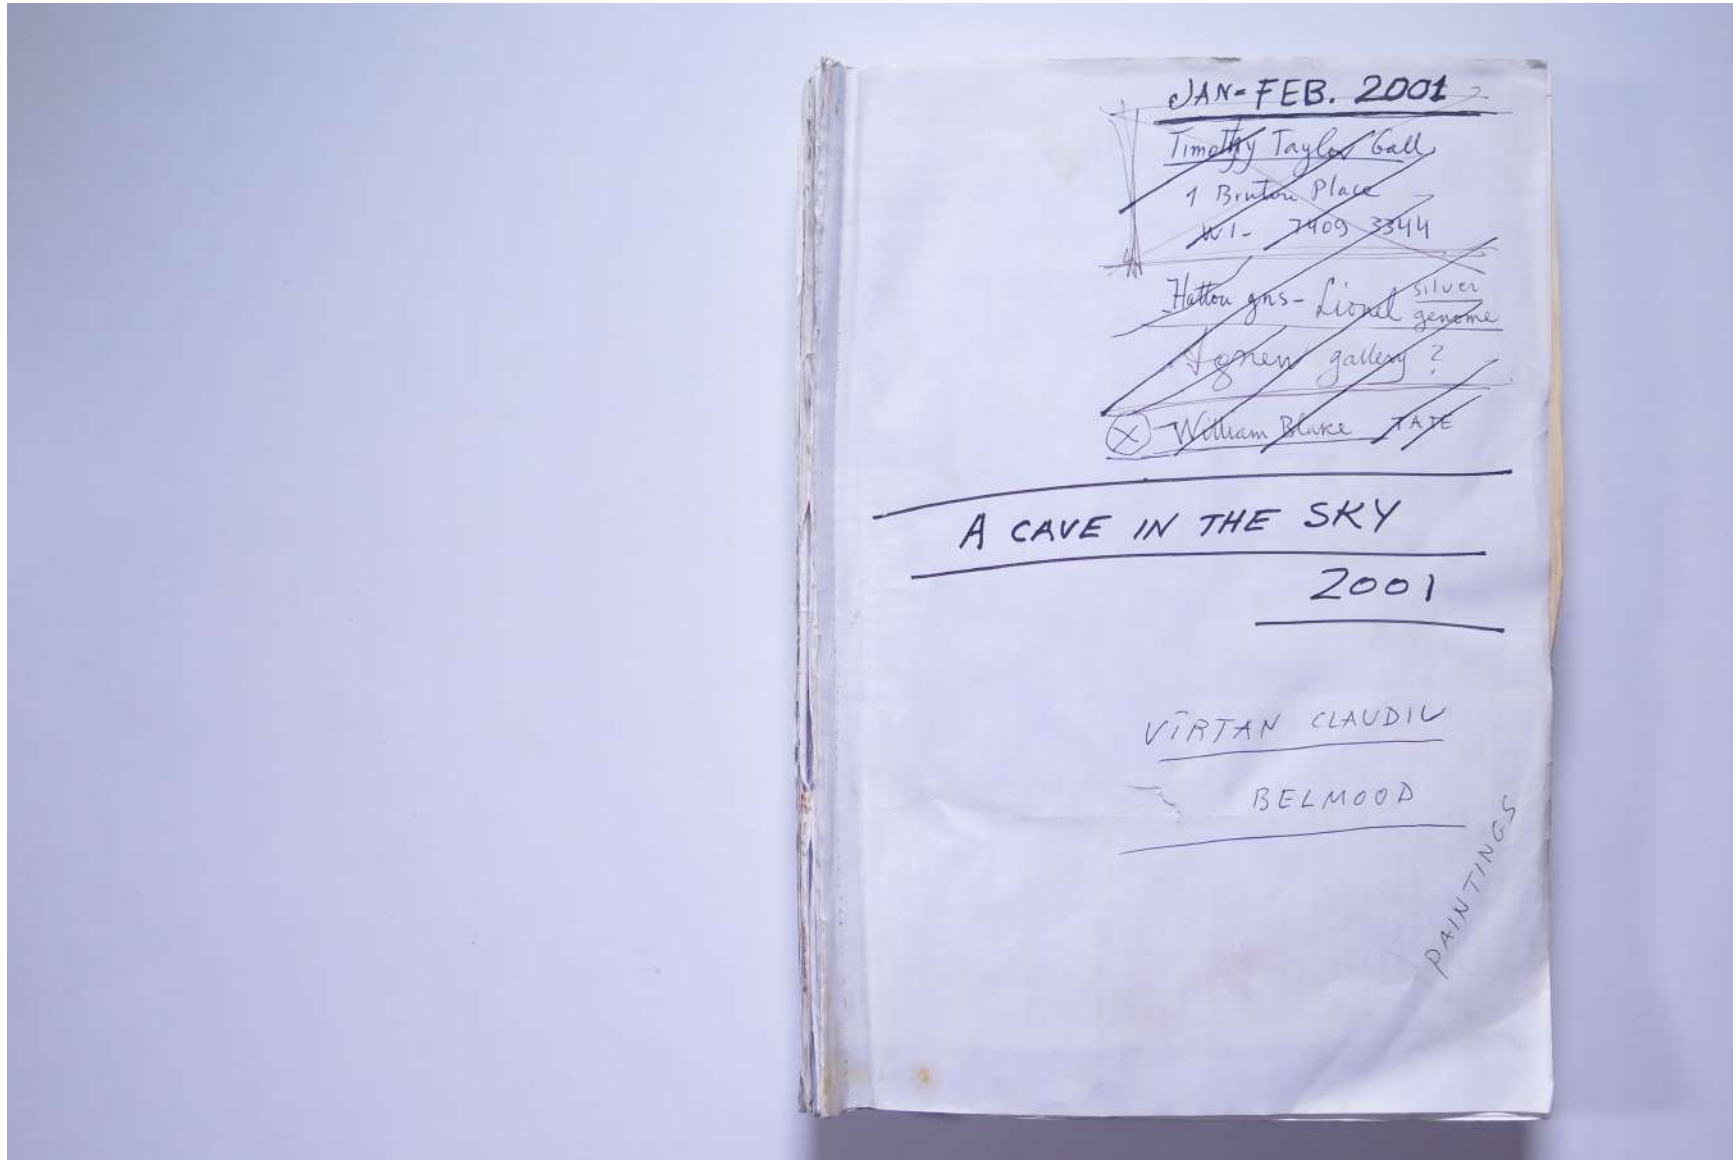 JAN-FEB. 2001
Timothy Taylor Gall
1 Bruton Place
W1- 7409 3344
Hatton gns- Lionel silver
genome
Agnew gallery?
X William Blake TATE
A CAVE IN THE SKY
2001
VÎRTAN CLAUDIU
BELMOOD
PAINTINGS